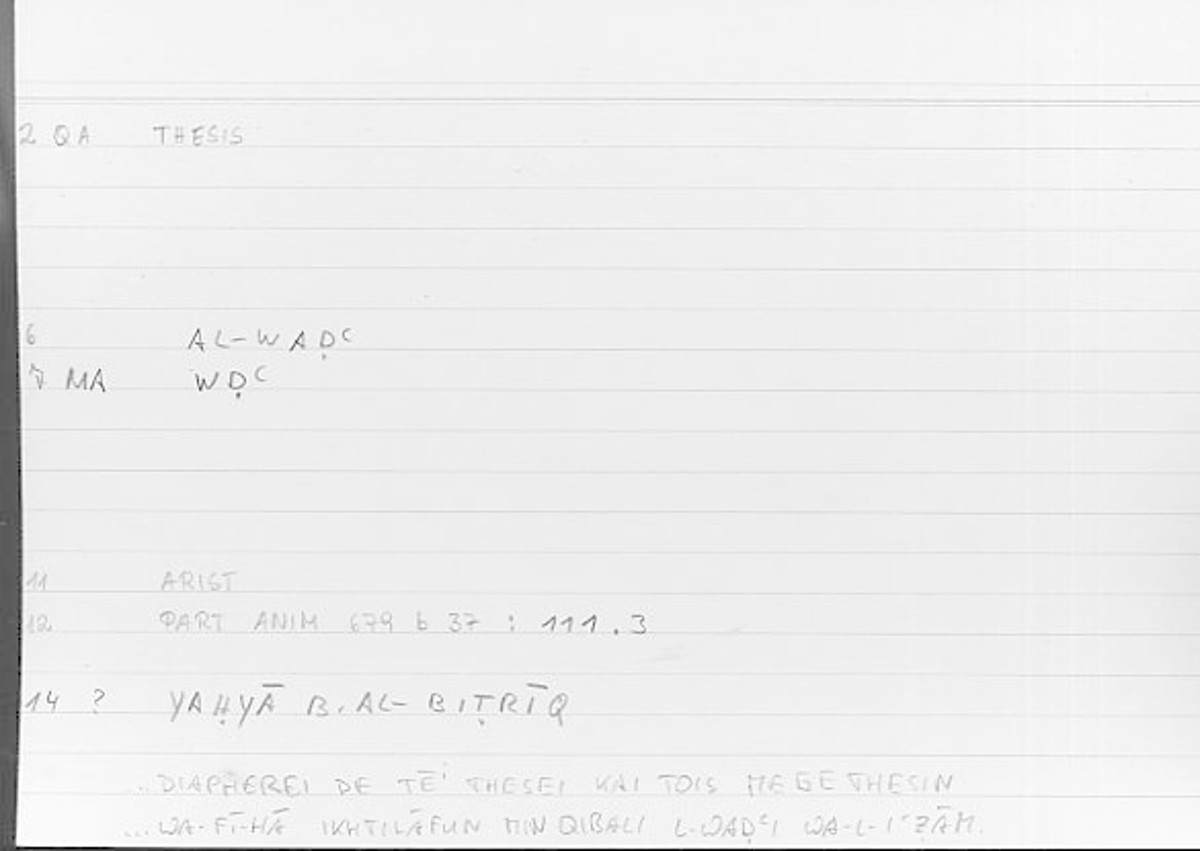 2 QA THESIS
6 AL-WAḌʿ
7 MA WḌʿ
11 ARIST
12 PART ANIM 679 b 37 : 111.3
14 ? YAḤYĀ B. AL-BIṬRĪQ
..DIAPHEREI DE TĒI THESEI KAI TOIS MEGETHESIN
...WA-FĪ-HĀ IKHTILĀFUN MIN QIBALI L-WAḌʿI WA-L-IʿẒĀM.